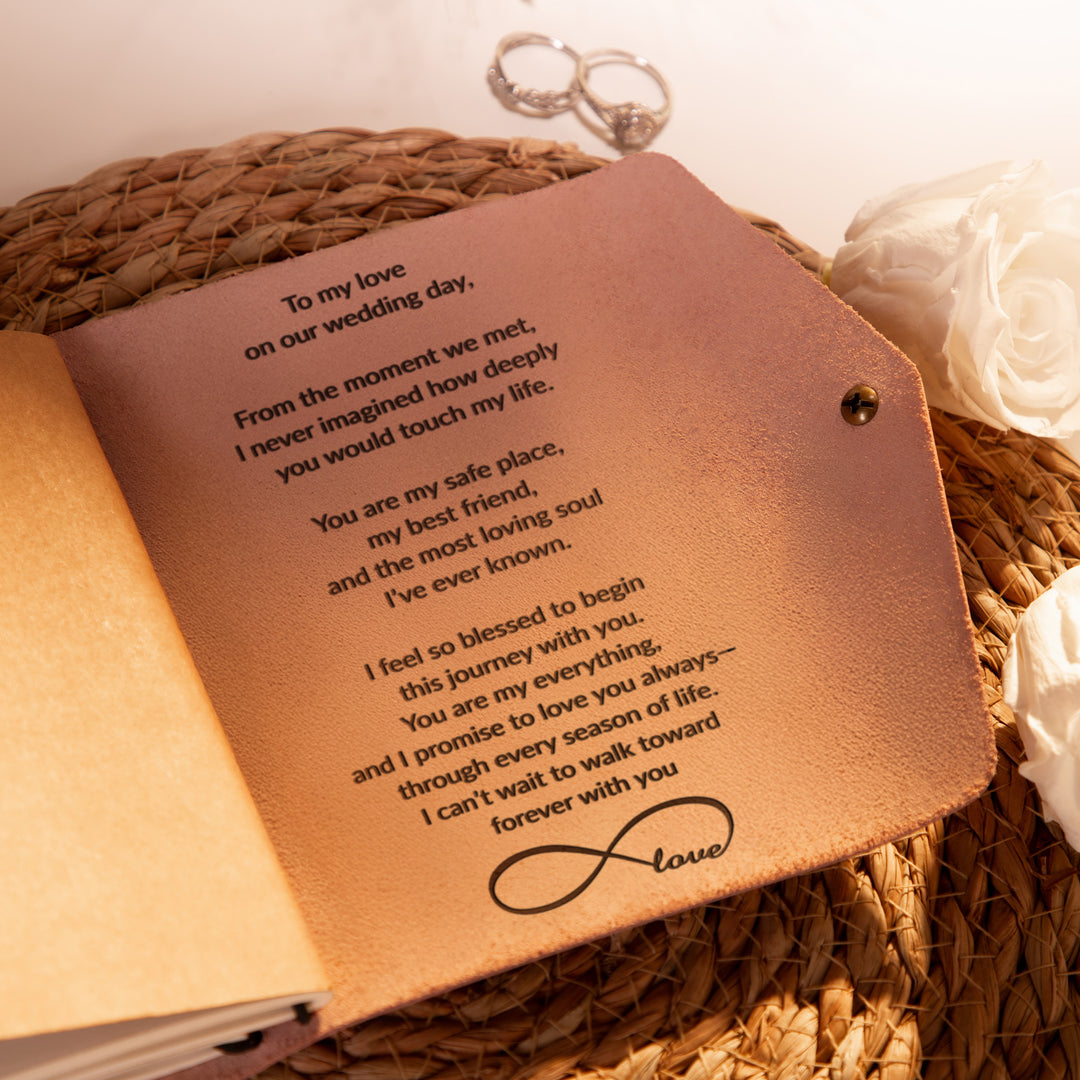 To my love
on our wedding day,
From the moment we met,
I never imagined how deeply
you would touch my life.
You are my safe place,
my best friend,
and the most loving soul
I've ever known.
I feel so blessed to begin
this journey with you.
You are my everything,
and I promise to love you always—
through every season of life.
I can't wait to walk toward
forever with you
love